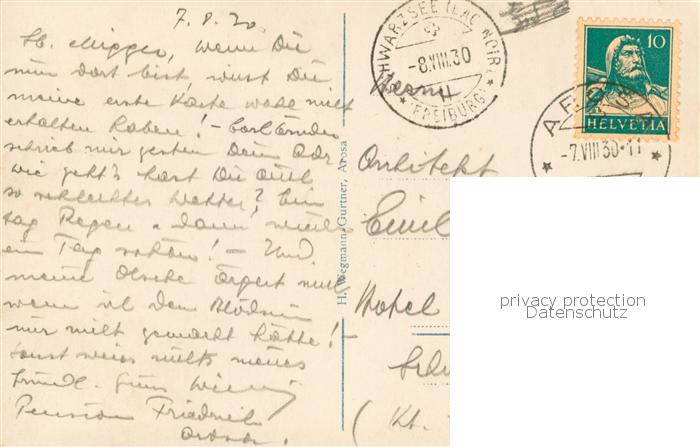 7.8.30
wenn Du
nun dort bist, wirst Du
meine erste Karte wohl nicht
erhalten haben! -
schrieb mir gestern Dein Adr.
wie geht's? hast Du auch
so schlechtes Wetter? Ein
tag Regen u. dann wieder
ein Tag schön! - Und
meine
wenn ich den Blödsinn
nur nicht gemacht hätte! -
sonst weiss nichts neues
Pension Friedrich
Arosa.
H. Wegmann-Gurtner, Arosa
SCHWARZSEE (LAC NOIR)
-8.VIII.30
(FREIBURG)
10
HELVETIA
AROSA
-7.VIII 30-11
Herrn
Architekt
Emil
Hotel
(Kt.
privacy protection
Datenschutz